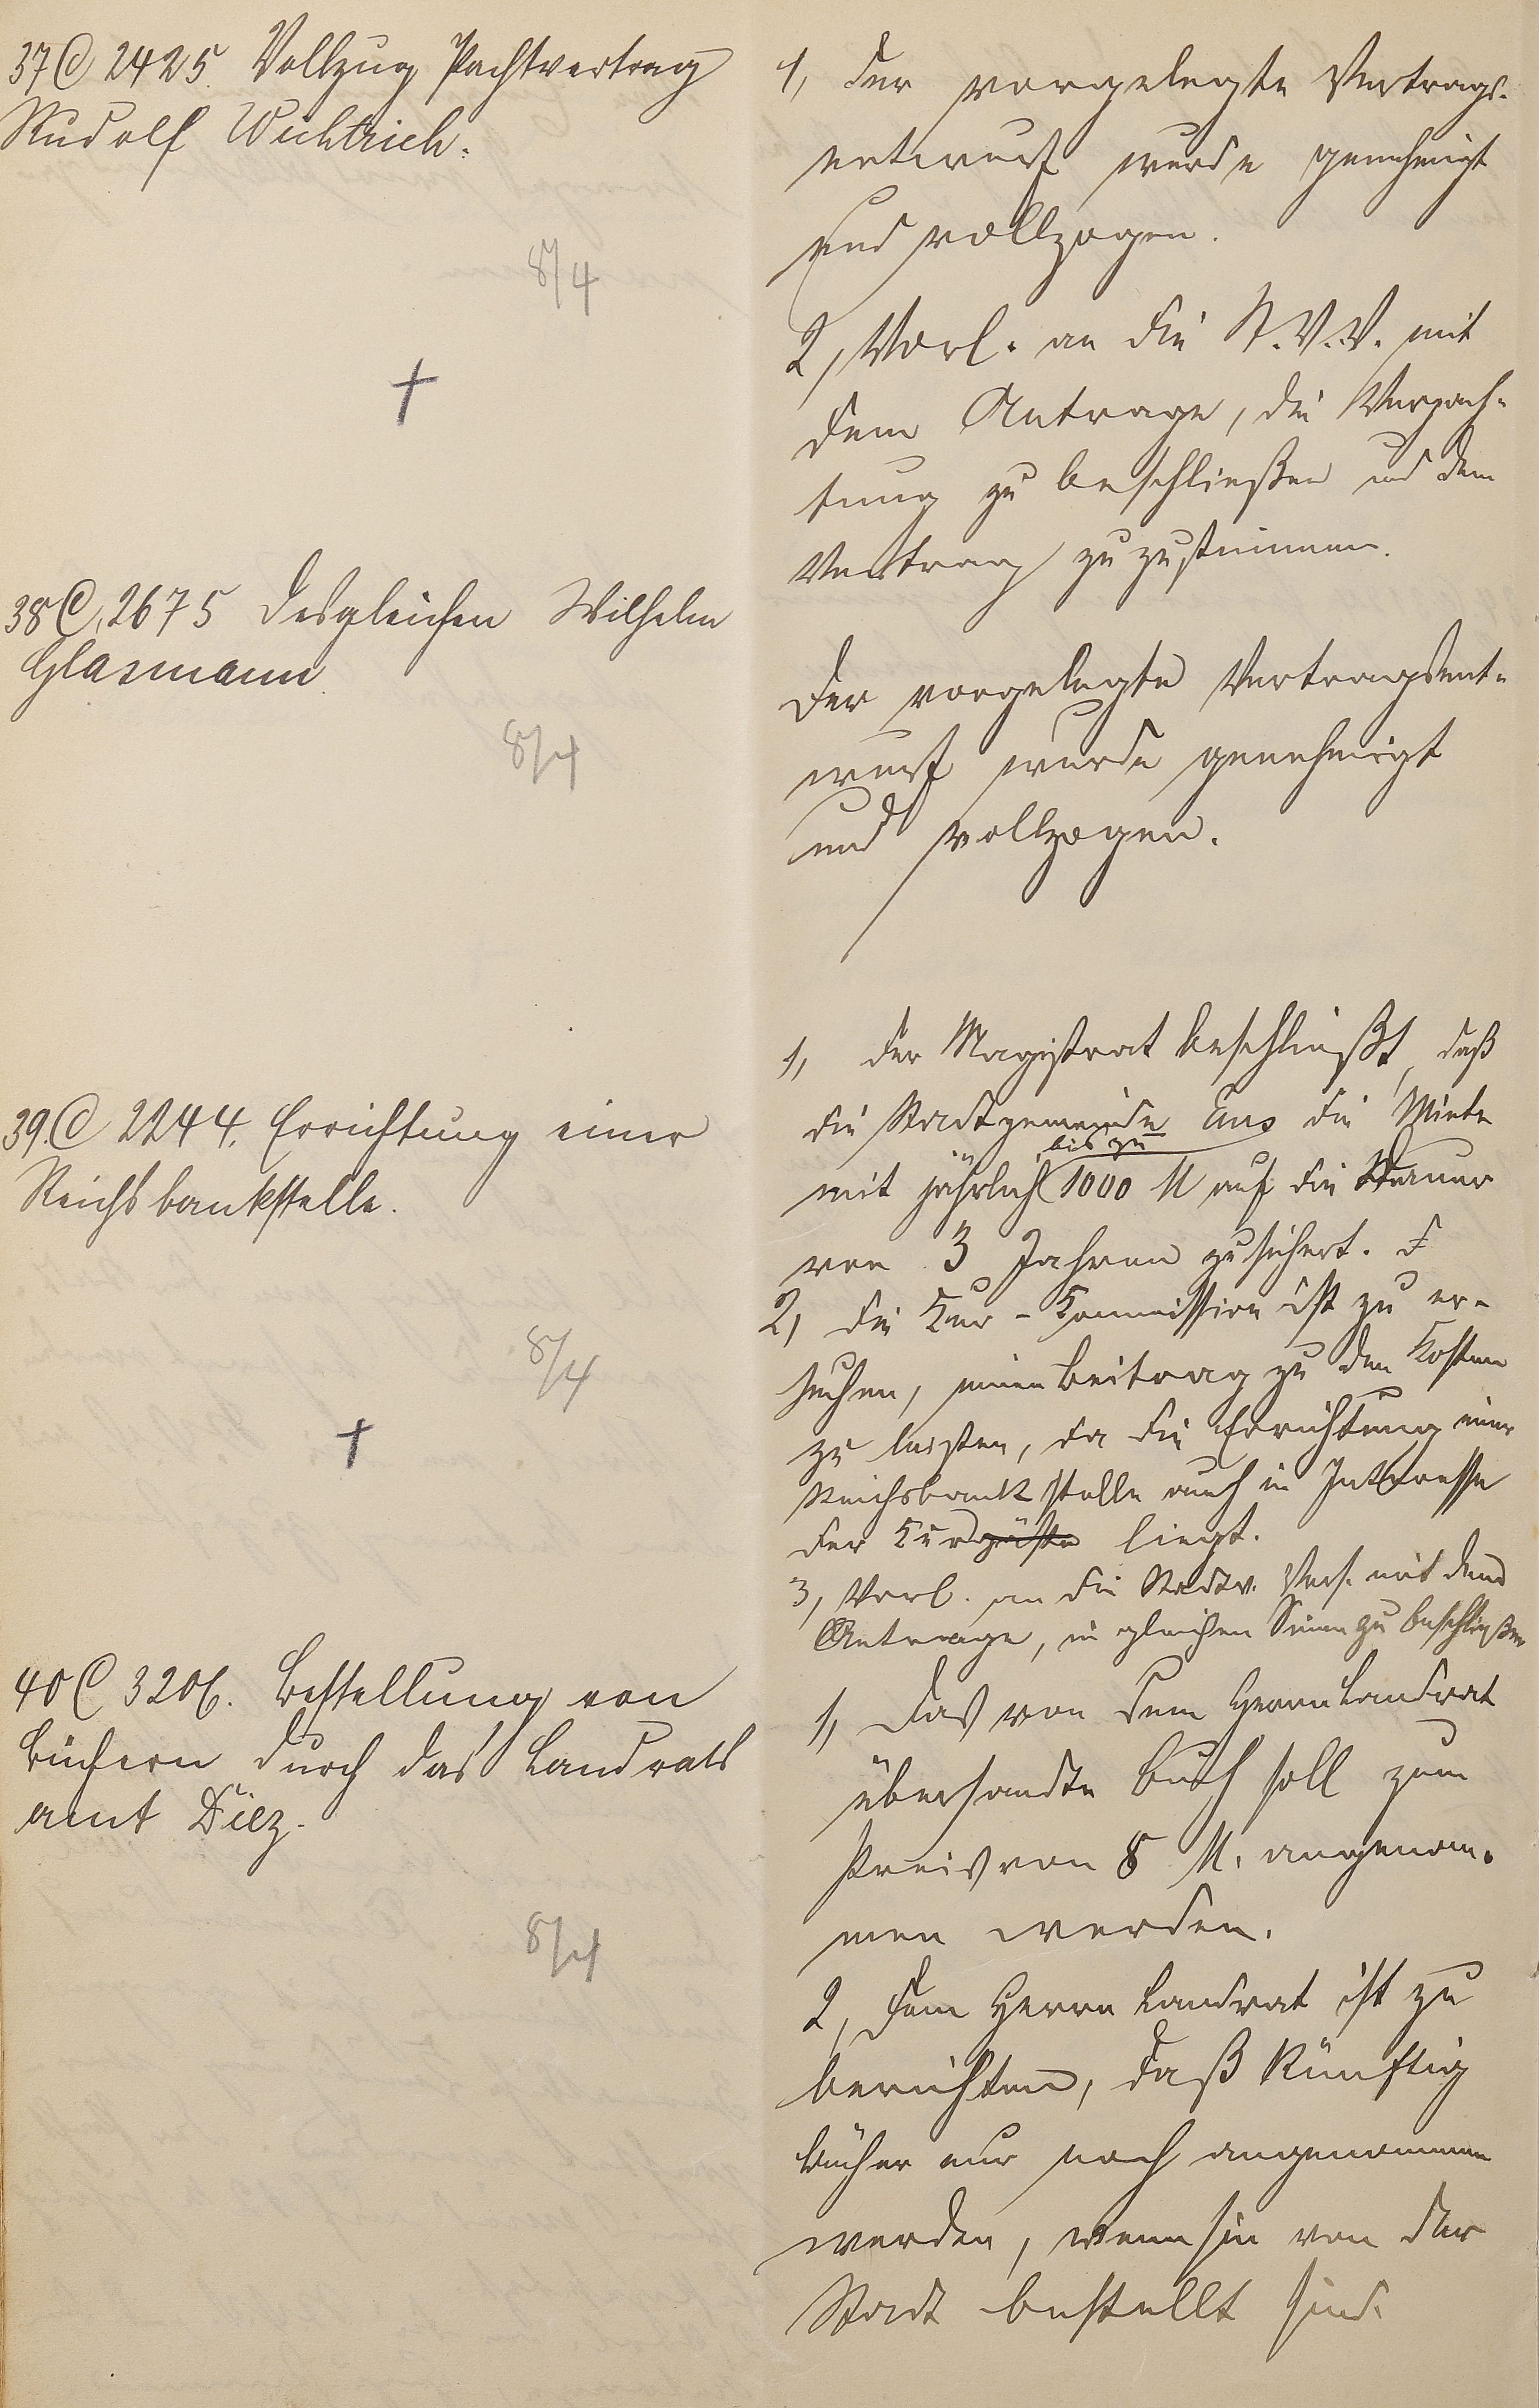 37 C 2425. Vollzug Pachtvertrag
Rudolf Wichtrich.
8/4
1, Der vorgelegte Vertrags-
entwurf wurde genehmigt
und vollzogen.
2, Vorl. an die St.V.V. mit
dem Antrage, die Verpach-
tung zu beschließen und dem
Vertrag zuzustimmen.
38 C. 2675 Desgleichen Wilhelm
Glasmann.
8/4
Der vorgelegte Vertragsent-
wurf wurde genehmigt
und vollzogen.
39. C 2244. Errichtung einer
Reichsbankstelle.
8/4
1, Der Magistrat beschließt, daß
die Stadtgemeinde Ems die Miete
bis zu
mit jährlich 1000 M auf die Dauer
von 3 Jahren zusichert.
2, Die Kur-Kommission ist zu er-
suchen, einen Beitrag zu den Kosten
zu leisten, da die Errichtung einer
Reichsbankstelle auch in Interesse
der Kurgäste liegt.
3, Vorl. an die Stadtv. Vers. mit dem
Antrage, in gleichen Sinne zu beschließen
40 C 3206. Bestellung von
Büchern durch das Landrats
amt Diez.
8/4
1, Das von dem Herrn Landrat
übersandte Buch soll zum
Preis von 8 M. angenom-
men werden.
2, Dem Herrn Landrat ist zu
berichten, daß künftig
Bücher nur noch angenommen
werden, wenn sie von der
Stadt bestellt sind.